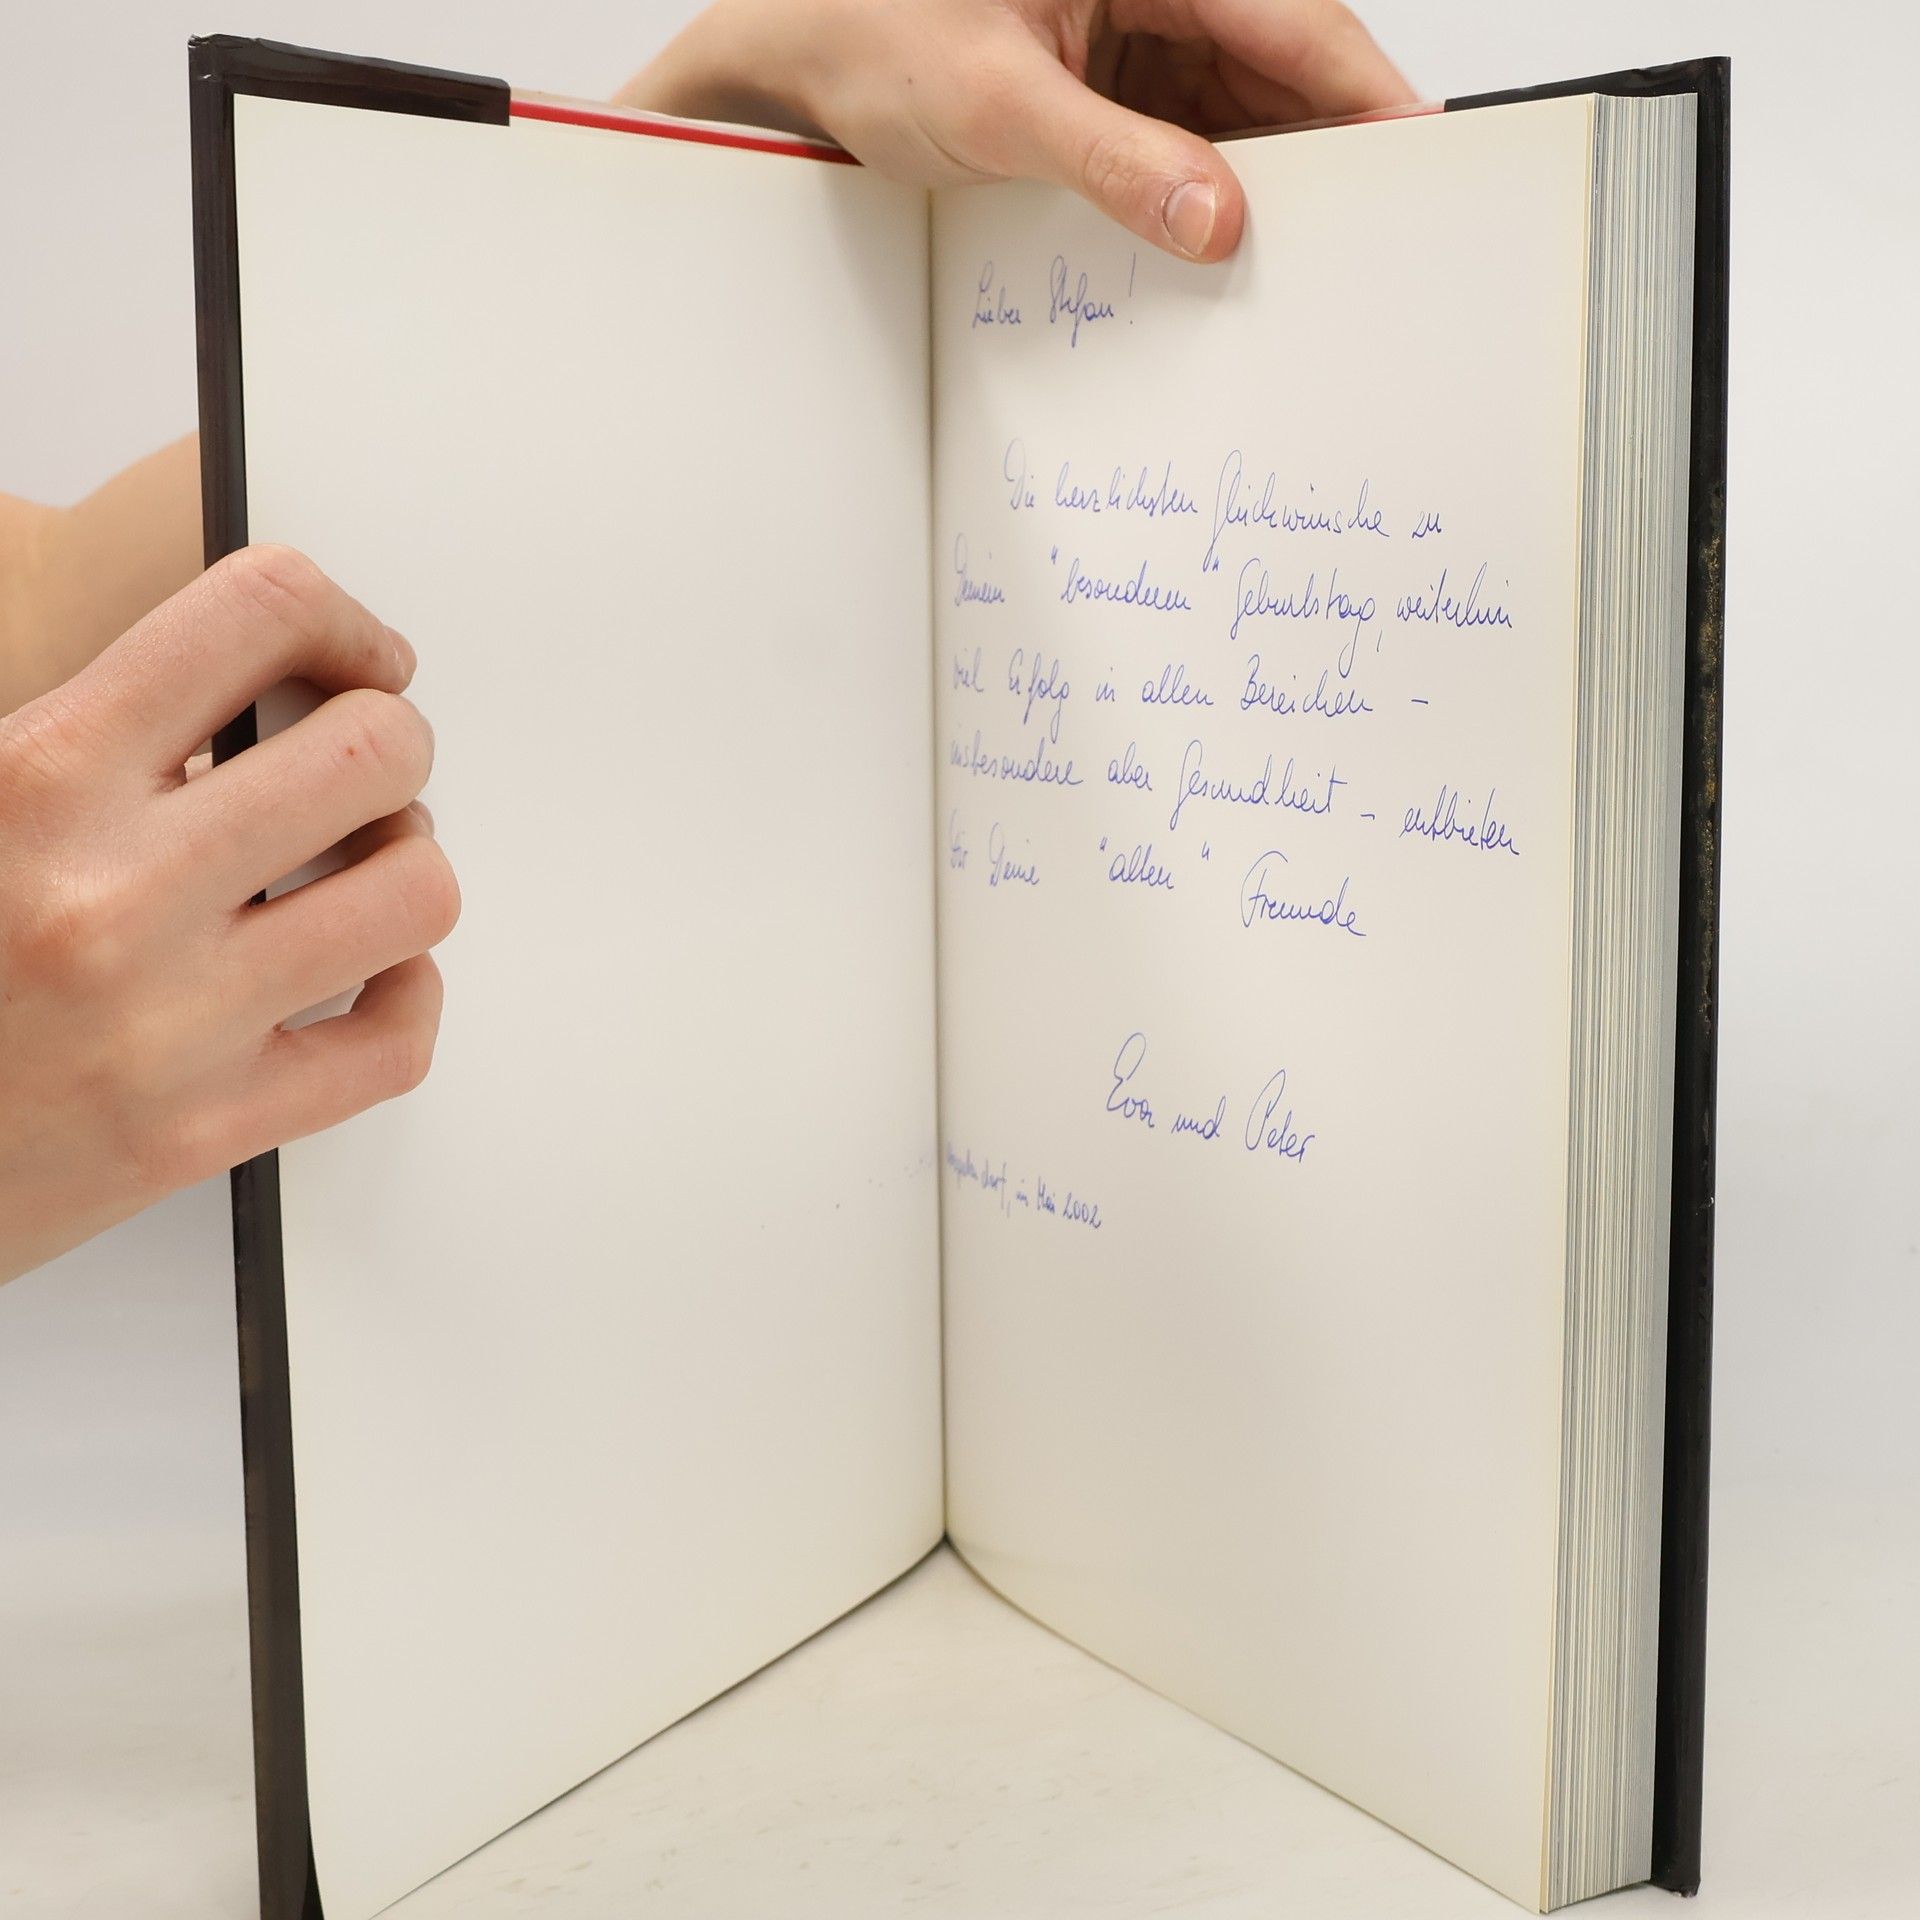 Lieber Stefan!
Die herzlichsten Glückwünsche zu
Deinem "besonderen" Geburtstag, weiterhin
viel Erfolg in allen Bereichen –
insbesondere aber Gesundheit – entbieten
Dir Deine "alten" Freunde
Eva und Peter
im Mai 2002